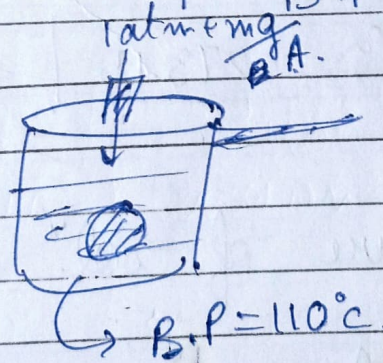 1 atm + mg
A.
B.P = 110°C